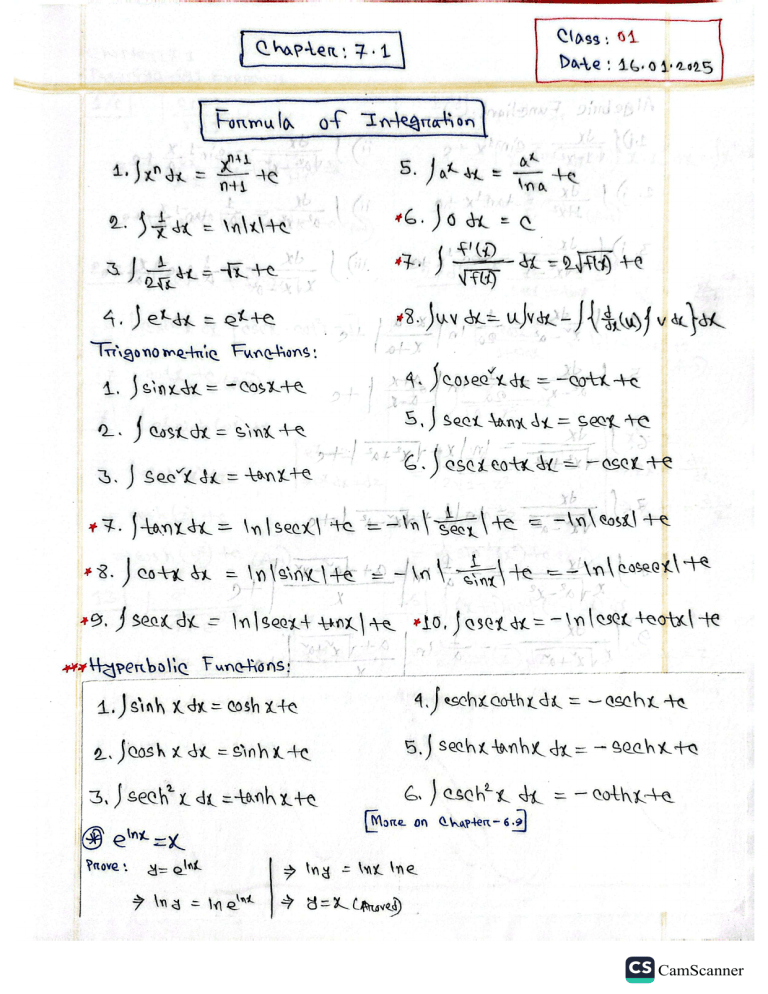 Chapter: 7.1
Class: 01
Date: 16.01.2025
Formula of Integration
1. ∫xⁿ dx = xⁿ⁺¹/n+1 + c
2. ∫ 1/x dx = ln|x| + c
3. ∫ 1/2√x dx = √x + c
4. ∫eˣ dx = eˣ + c
5. ∫aˣ dx = aˣ/ln a + c
*6. ∫0 dx = c
*7. ∫ f'(x)/√f(x) dx = 2√f(x) + c
*8. ∫uv dx = u∫v dx − ∫{d/dx(u)∫v dx}dx
Trigonometric Functions:
1. ∫sinx dx = −cosx + c
2. ∫cosx dx = sinx + c
3. ∫sec²x dx = tanx + c
4. ∫cosec²x dx = −cotx + c
5. ∫secx tanx dx = secx + c
6. ∫cscx cotx dx = −cscx + c
*7. ∫tanx dx = ln|secx| + c = −ln|1/secx| + c = −ln|cosx| + c
*8. ∫cotx dx = ln|sinx| + c = −ln|1/sinx| + c = −ln|cosecx| + c
*9. ∫secx dx = ln|secx + tanx| + c *10. ∫cscx dx = −ln|cscx + cotx| + c
***Hyperbolic Functions:
1. ∫sinh x dx = cosh x + c
2. ∫cosh x dx = sinh x + c
3. ∫sech² x dx = tanh x + c
4. ∫cschx cothx dx = −cschx + c
5. ∫sechx tanhx dx = −sechx + c
6. ∫csch² x dx = −cothx + c
[More on Chapter-6.9]
⊛ e^lnx = x
Prove: y = e^lnx
⇒ ln y = ln e^lnx
⇒ ln y = lnx lne
⇒ y = x (Proved)
CS CamScanner